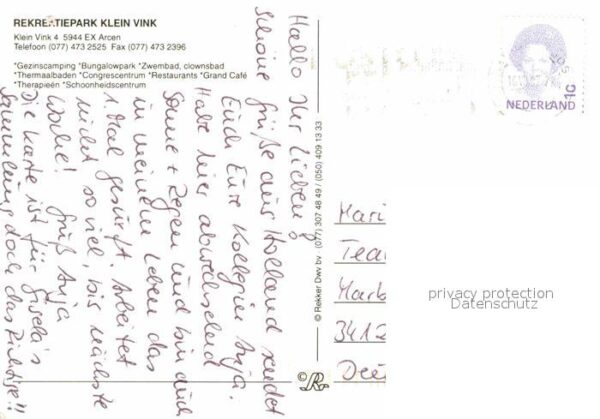 REKREATIEPARK KLEIN VINK
Klein Vink 4 5944 EX Arcen
Telefoon (077) 473 2525 Fax (077) 473 2396
*Gezinscamping *Bungalowpark *Zwembad, clownsbad
*Thermaalbaden *Congrescentrum *Restaurants *Grand Café
*Therapieën *Schoonheidscentrum
Hallo Ihr Lieben!
Schöne Grüße aus Holland sendet
Euch Eure Kollegin Anja.
Habt hier abwechselnd
Sonne + Regen und bin auch
in meinem Leben das
1. Mal gesurft. Arbeitet
nicht so viel, bis nächste
Woche! Gruß Anja
Die Karte ist für Gisela's
Sammlung, doch das Richtige!!
© Rekker Dwv bv (077) 307 48 49 / (050) 409 13 33
NEDERLAND
1G
Mari
Tea
Mark
3412
Deu
privacy protection
Datenschutz
©